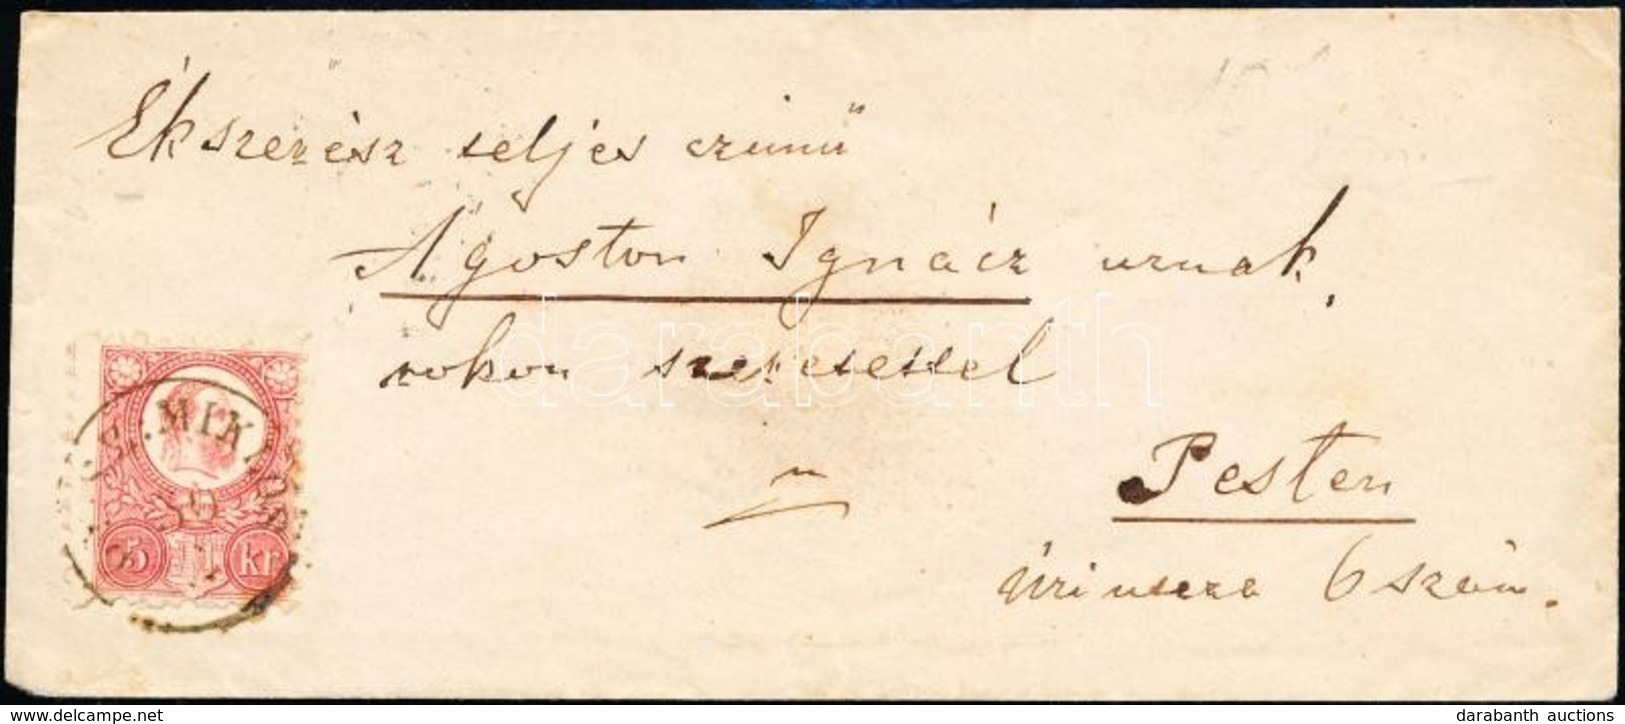 Ékszerész teljes czimű
Ágoston Ignácz urnak,
rokon szeretettel
Pesten
Úri utcza 6 szám.
MIKLOS
5 kr
darabanth
delcampe.net
darabanth auctions